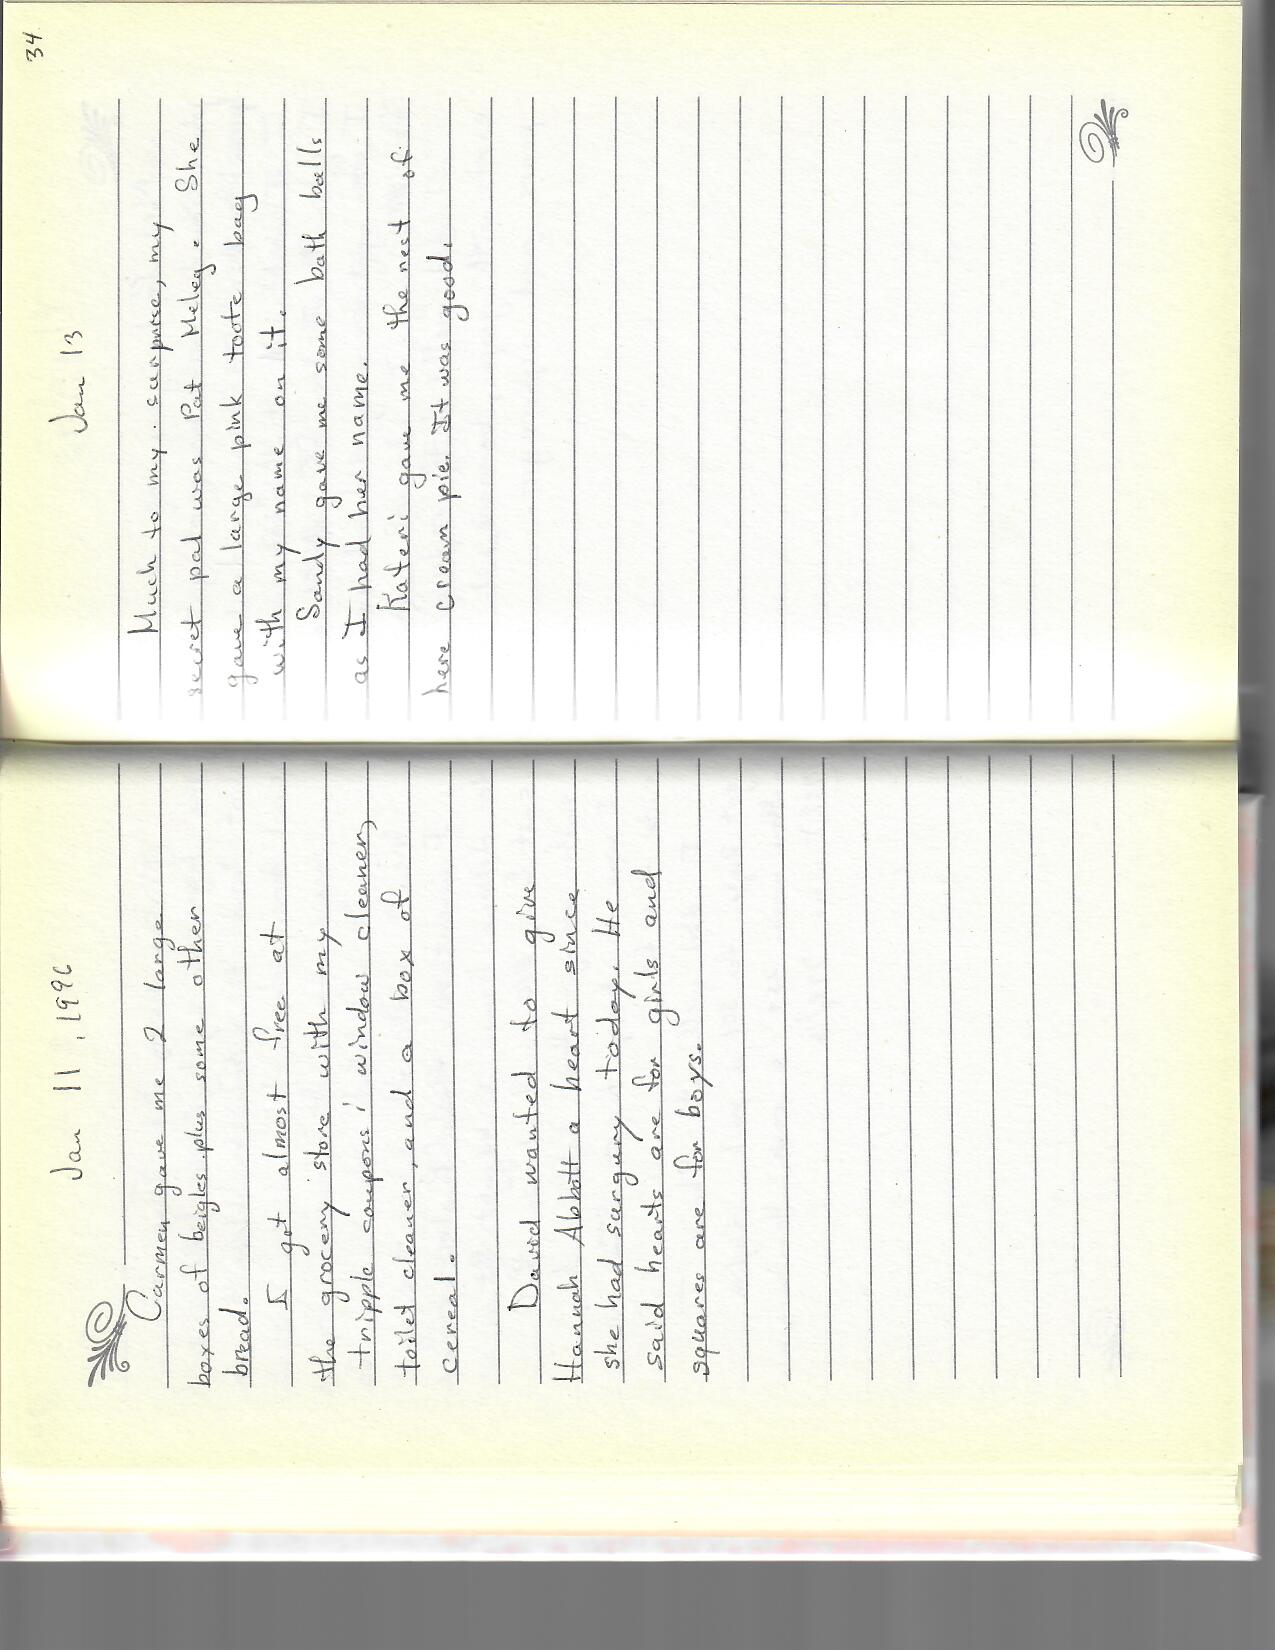 Jan 11, 1996
Carmen gave me 2 large
boxes of beigles plus some other
bread.
I got almost free at
the grocery store with my
tripple coupons; window cleaner,
toilet cleaner, and a box of
cereal.
David wanted to give
Hannah Abbott a heart since
she had surgury today. He
said hearts are for girls and
squares are for boys.
34
Jan 13
Much to my surprise, my
secret pal was Pat Meleg. She
gave a large pink toote bag
with my name on it.
Sandy gave me some bath balls
as I had her name.
Kateri gave me the rest of
here cream pie. It was good.